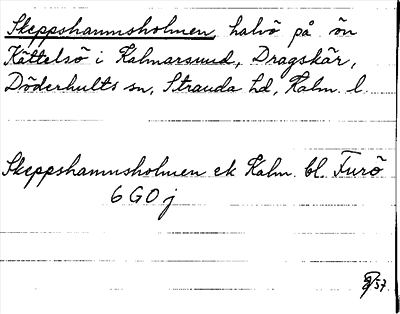 Skeppshamnsholmen, halvö på ön
Kättelsö i Kalmarsund, Dragskär,
Döderhults sn, Stranda hd, Kalm. l.
Skeppshamnsholmen ek Kalm. bl. Furö
6 G O j
/57